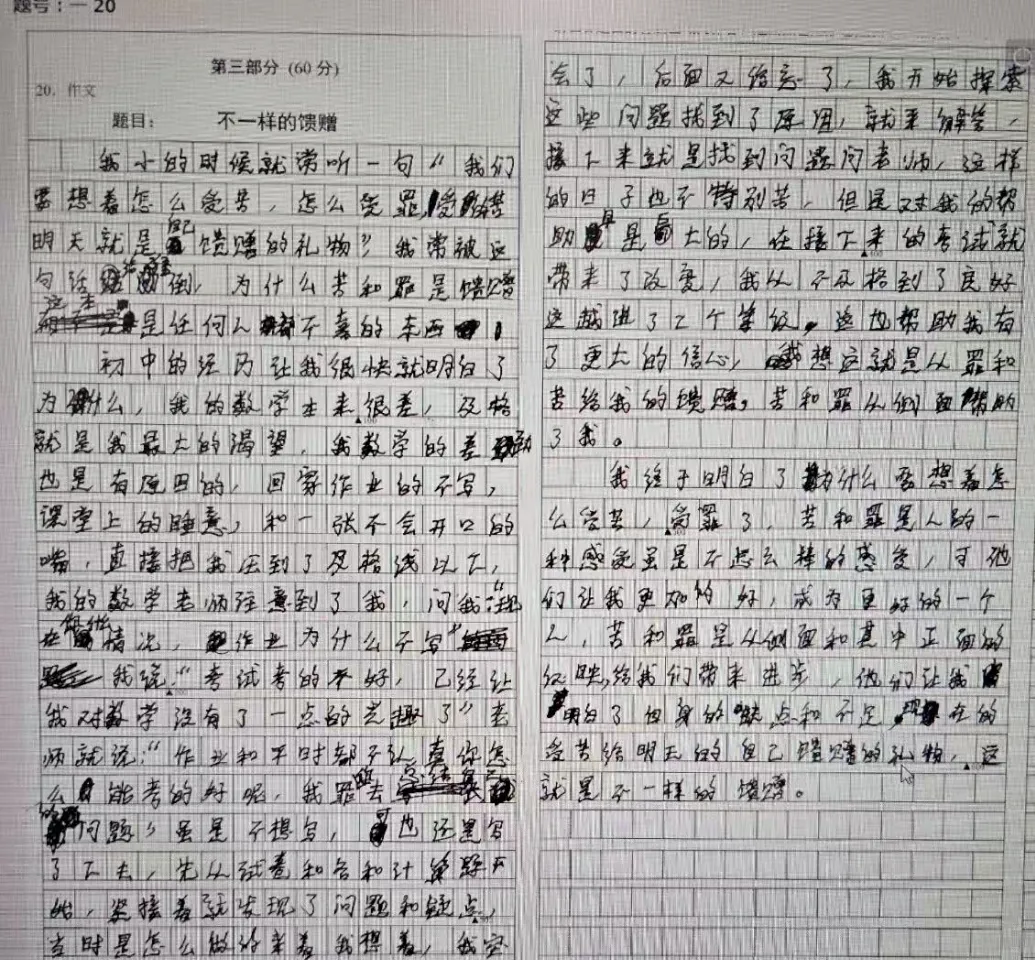 题号：一 20
第三部分 (60 分)
20. 作文
题目： 不一样的馈赠
我小的时候就常听一句“我们
要想着怎么受苦，怎么受罪，受的苦
明天就是自己馈赠的礼物”我常被这
句话倒，为什么苦和罪是馈赠
这本是任何人都不喜的东西。
初中的经历让我很快就明白了
为什么，我的数学本来很差，及格
就是我最大的渴望，我数学的差到
也是有原因的，回家作业的不写，
课堂上的睡意，和一张不会开口的
嘴，直接把我压到了及格线以下，
我的数学老师注意到了我，问我：“现
在情况，作业为什么不写”
我说：“考试考的不好，已经让
我对数学没有了一点的兴趣了”老
师就说：“作业和平时都不认真你怎
么能考的好呢，我罪去
的问题”虽是不想写，可也还是写
了下去，先从试卷和各和计算题开
始，紧接着就发现了问题和疑点，
当时是怎么做的来着我想着，我空
会了，后面又给忘了，我开始探索
这些问题找到了原因，就来解答，
接下来就是找到问题问老师，这样
的日子也不特别苦，但是对我的帮
助是巨大的，在接下来的考试就
带来了改变，我从不及格到了良好
这越进了2个等级，这也帮助我有
了更大的信心，我想这就是从罪和
苦给我的馈赠，苦和罪从侧面帮助
了我。
我终于明白了为什么要想着怎
么受苦，受罪了，苦和罪是人的一
种感受虽是不怎么棒的感受，可他
们让我更加的好，成为更好的一个
人，苦和罪是从侧面和其中正面的
反映，给我们带来进步，他们让我
明白了自身的缺点和不足，现在的
受苦给明天的自己馈赠的礼物，这
就是不一样的馈赠。